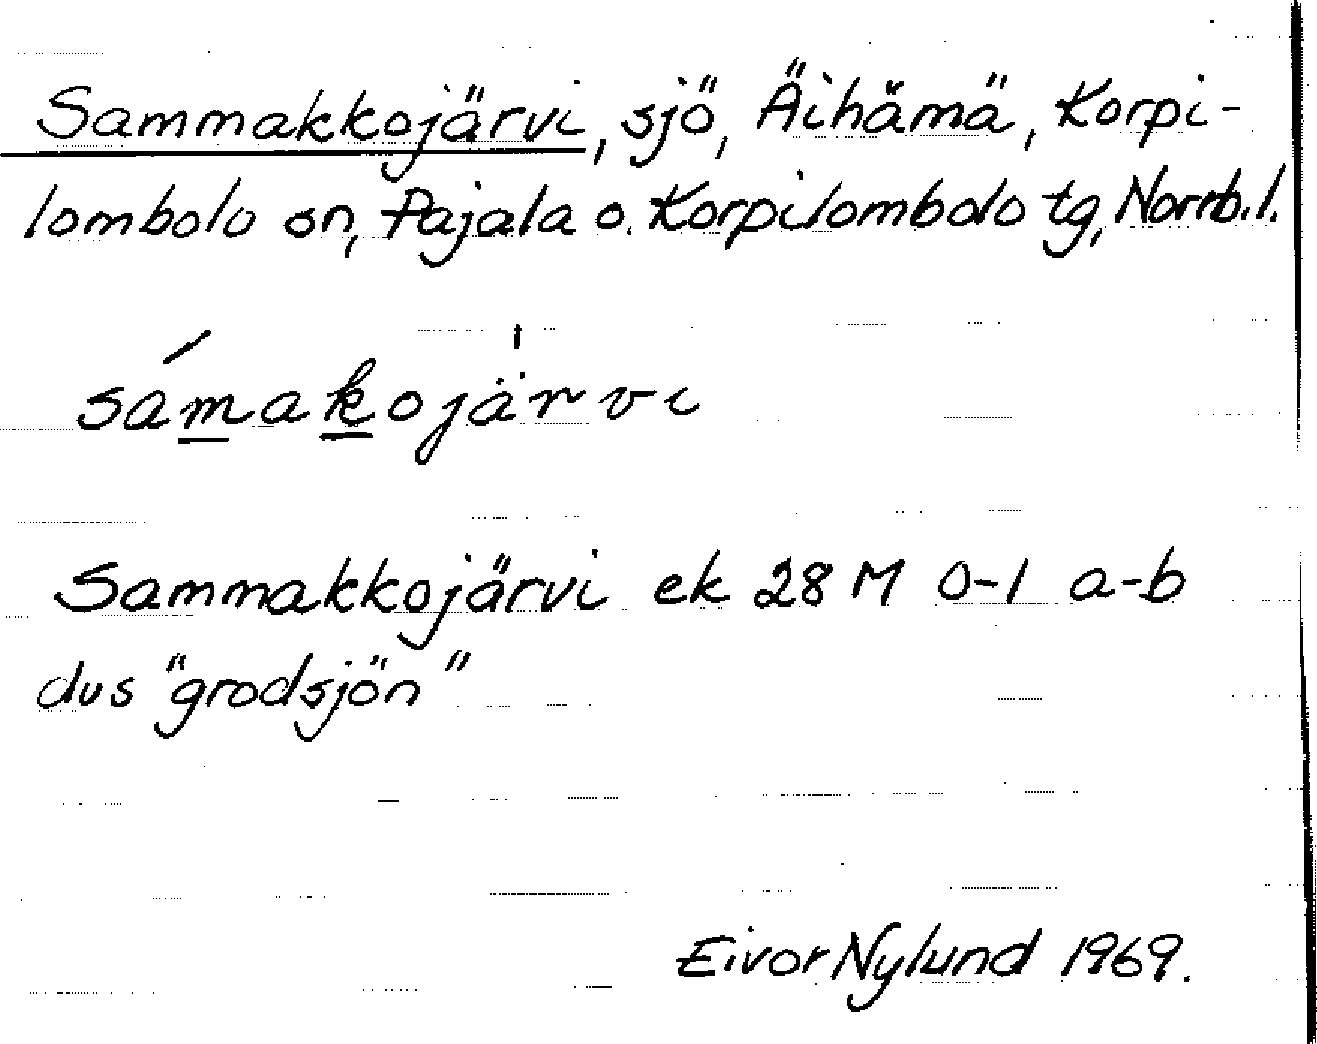 Sammakkojärvi, sjö, Äihämä, Korpi-
lombolo sn, Pajala o. Korpilombolo tg, Norrb.l.
sámakojä'rvi
Sammakkojärvi ek 28 M 0-1 a-b
dvs "grodsjön"
Eivor Nylund 1969.